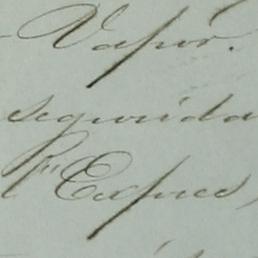 Vapor.
segurida
Expres